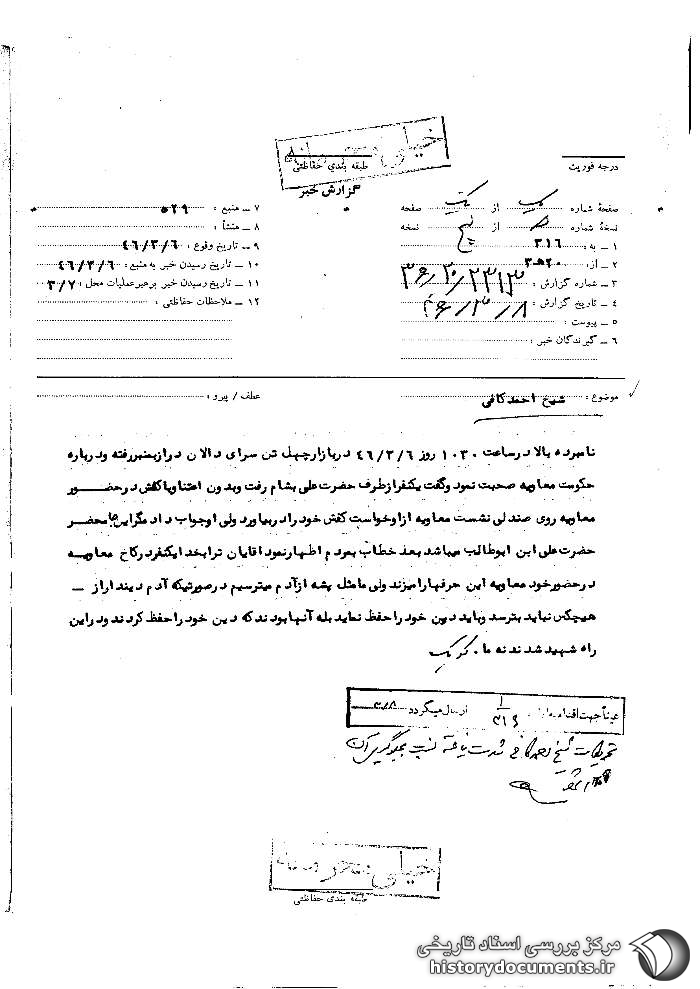 خیلی محرمانه
طبقه بندی حفاظتی
گزارش خبر
درجه فوریت
صفحهٔ شماره یک از یک صفحه
نسخهٔ شماره از پنج نسخه
۱ – به : ۳۱۶
۲ – از: ۲۰ ﻫ ۳
۳ – شماره گزارش :
۴ – تاریخ گزارش : ۴۶/۳/۸
۵ – پیوست :
۶ – گیرندگان خبر :
۷ – منبع : ۵۲۹
۸ – منشأ :
۹ – تاریخ وقوع : ۴۶/۳/۶
۱۰ – تاریخ رسیدن خبر به منبع : ۴۶/۳/۶
۱۱ – تاریخ رسیدن خبر برهبر عملیات محل : ۳/۷
۱۲ – ملاحظات حفاظتی :
موضوع : شیخ احمد کافی
عطف / پیرو :
نامبرده بالا درساعت ۱۰۳۰ روز ۴۶/۳/۶ دربازارچهل تن سرای دالان درازبمنبررفته ودرباره
حکومت معاویه صحبت نمود وگفت یکنفرازطرف حضرت علی بشام رفت وبدون اعتنا وباکفش درحضور
معاویه روی صندلی نشست معاویه ازاوخواست کفش خود را دربیاورد ولی اوجواب داد مگراینجا محضر
حضرت علی ابن ابوطالب میباشد بعد خطاب بمردم اظهارنمود اقایان ترابخدا یکنفردرکاخ معاویه
درحضورخود معاویه این حرفهارامیزند ولی مامثل پشه ازآدم میترسیم درصورتیکه آدم دیندار از –
هیچکس نباید بترسد وباید دین خود راحفظ نماید بله آنها بودند که دین خود راحفظ کردند ودراین
راه شهید شدند نه ما .
عیناً جهت اقدام ۳۱۶ ارسال میگردد ۳/۸
شیخ احمد کافی شدت یافته نسبت بجلوگیری آن
خیلی محرمانه
طبقه بندی حفاظتی
مرکز بررسی اسناد تاریخی
historydocuments.ir